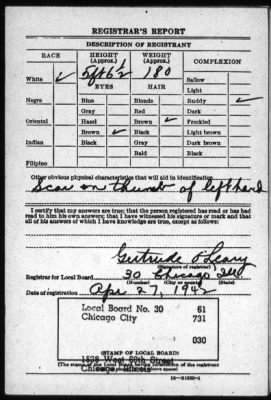 REGISTRAR'S REPORT
DESCRIPTION OF REGISTRANT
RACE HEIGHT (Approx.) WEIGHT (Approx.) COMPLEXION
White ✓ 5 ft 6 1/2 180 Sallow
EYES HAIR Light
Negro Blue Blonde Ruddy ✓
Gray Red Dark
Oriental Hazel Brown ✓ Freckled
Brown ✓ Black Light brown
Indian Black Gray Dark brown
Bald Black
Filipino
Other obvious physical characteristics that will aid in identification
Scar on thumb of left hand
I certify that my answers are true; that the person registered has read or has had
read to him his own answers; that I have witnessed his signature or mark and that
all of his answers of which I have knowledge are true, except as follows:
Gertrude O'Leary
(Signature of registrar)
Registrar for Local Board 30 Chicago Ill
(Number) (City or county) (State)
Date of registration Apr 27, 1942
Local Board No. 30 61
Chicago City 731
030
(STAMP OF LOCAL BOARD)
West
(The stamp of the Local Board of the registrant
Chicago, Illinois above space)